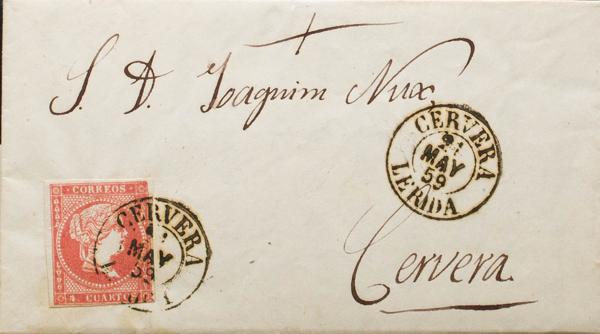 S. D. Joaquim Nux,
CERVERA
21
MAY
59
LERIDA
CORREOS
4 CUARTOS
CERVERA
MAY
59
Cervera.